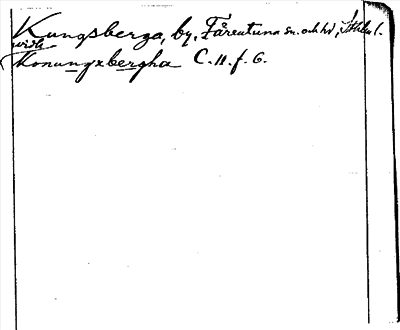 Kungsberga, by, Färentuna sn. och hd, Sthlm l.
Konungxbergha C. 11. f. 6.